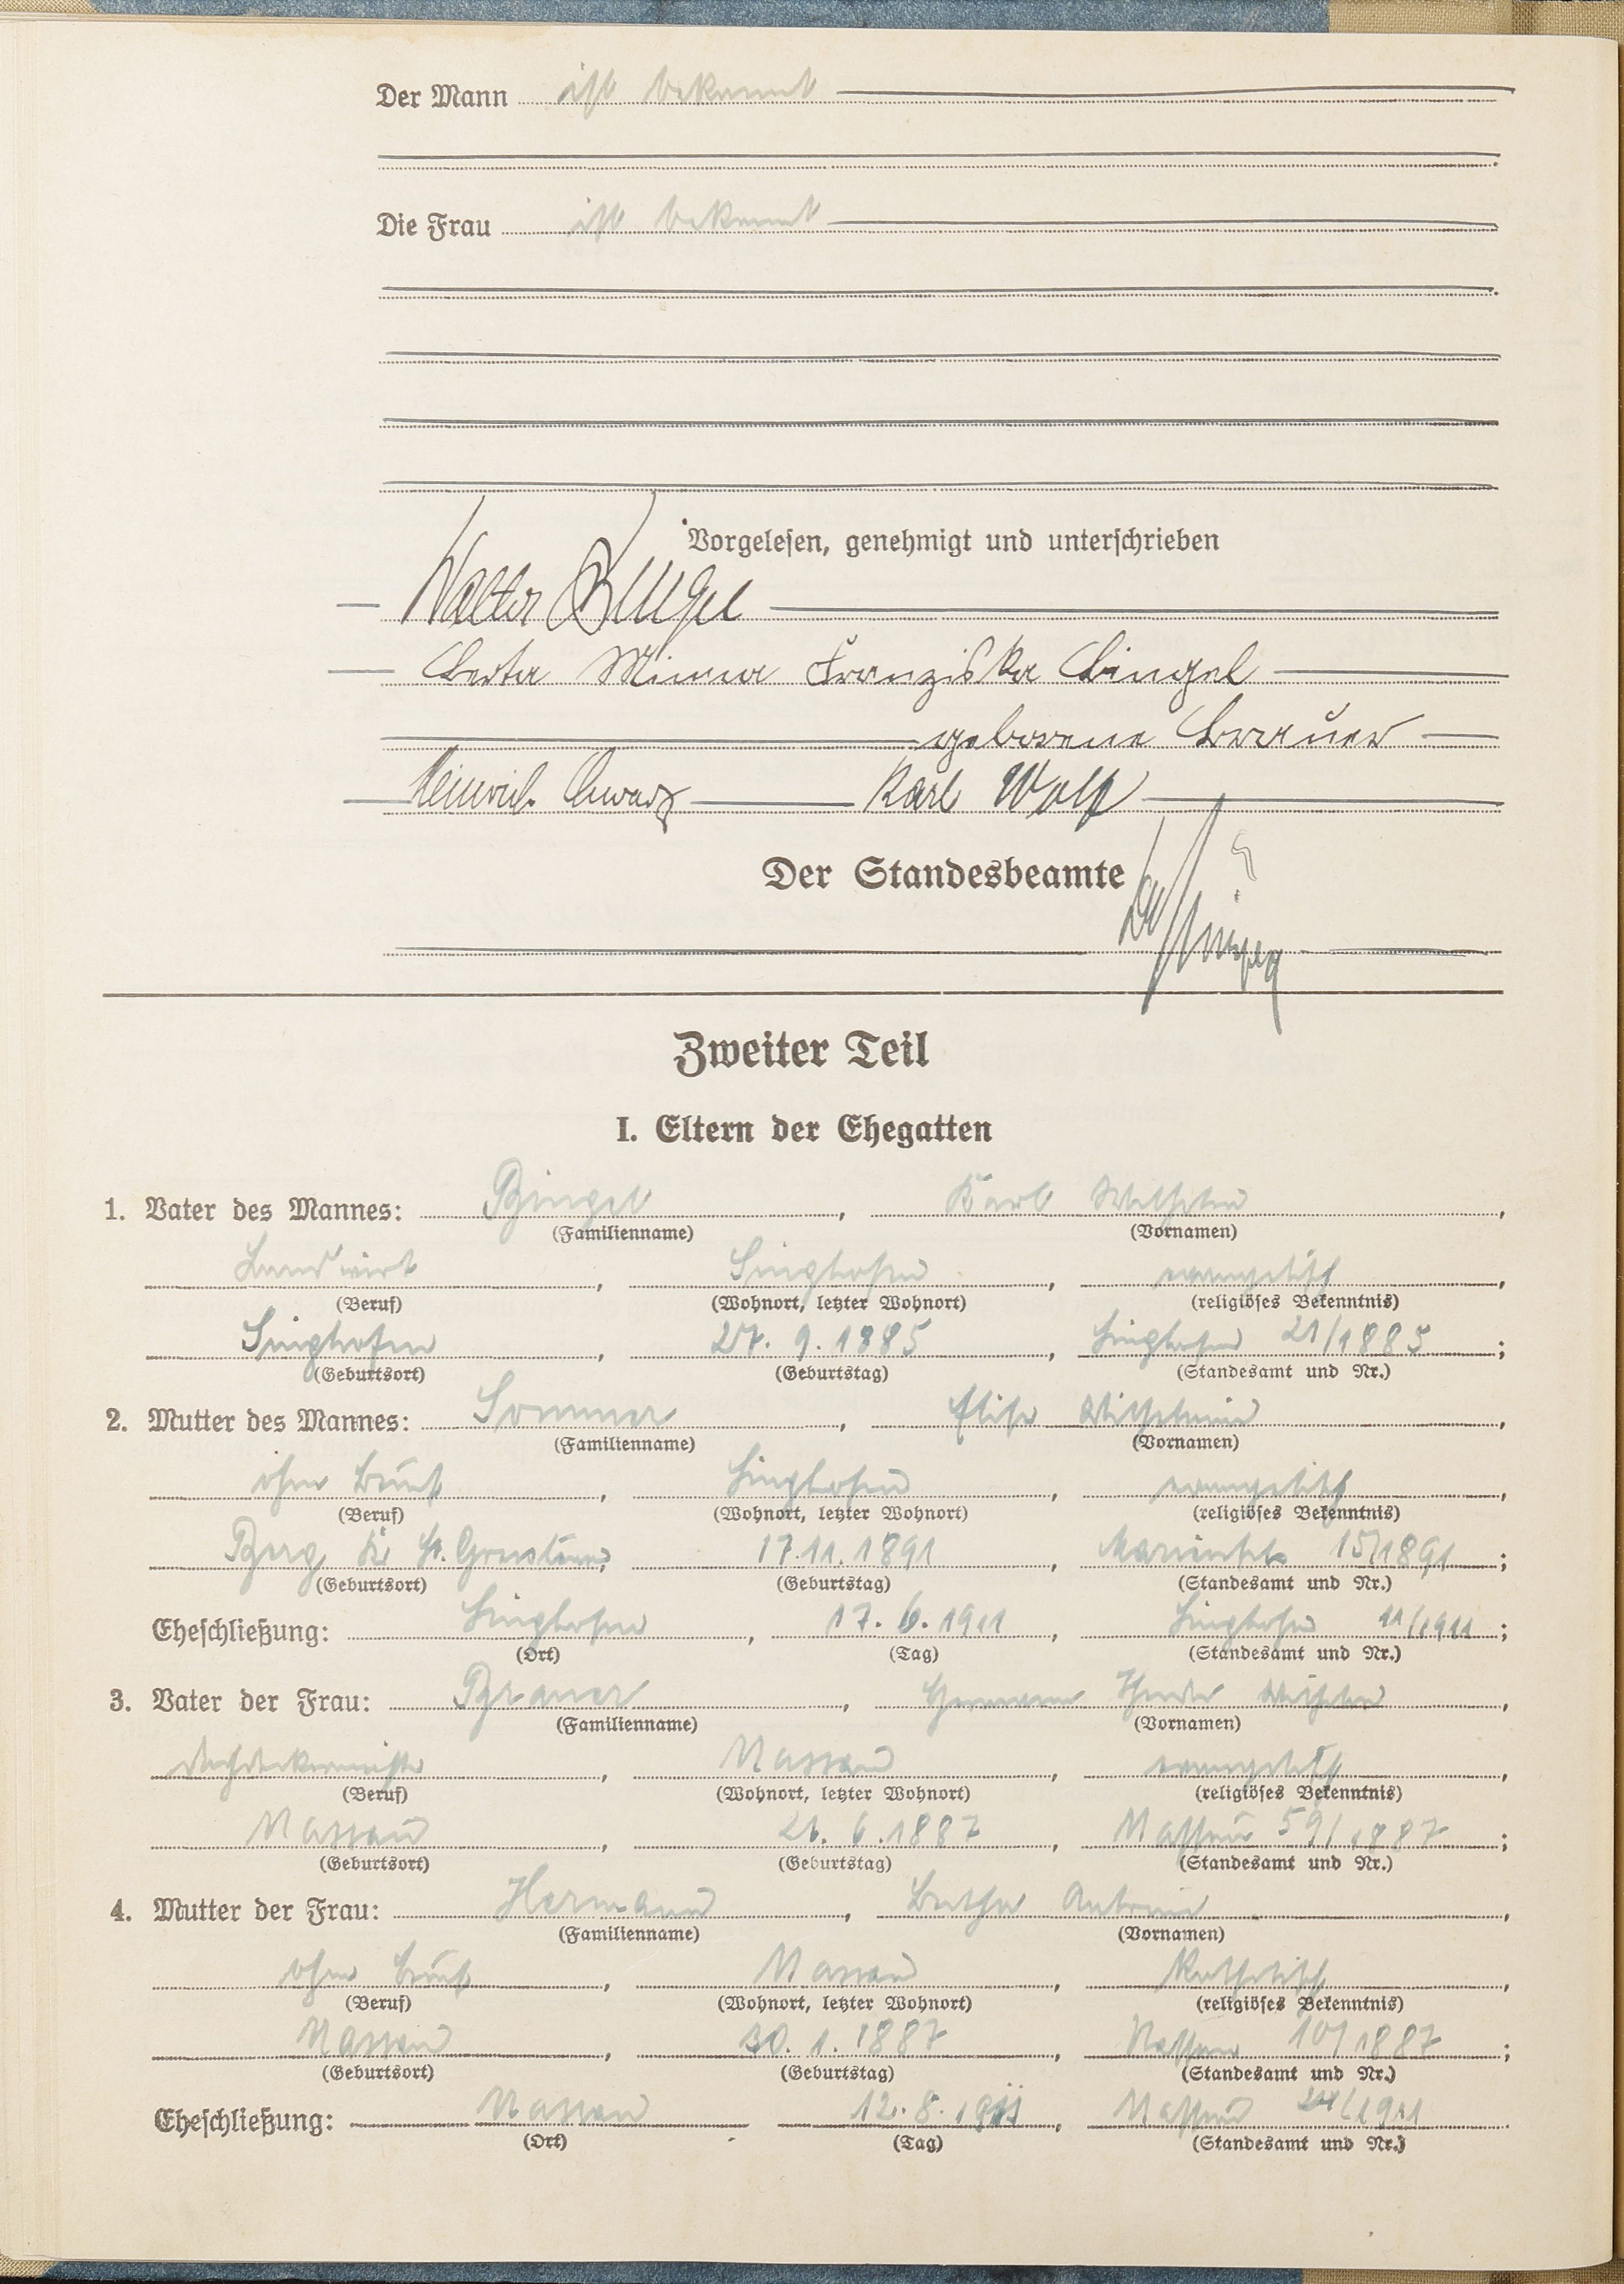 Der Mann ist bekannt
Die Frau ist bekannt
Vorgelesen, genehmigt und unterschrieben
Walter Bingel
Berta Minna Franziska Bingel
geborene Brauer
Heinrich Karl Wolf
Der Standesbeamte
Zweiter Teil
I. Eltern der Ehegatten
1. Vater des Mannes: Bingel, Karl Wilhelm,
(Familienname) (Vornamen)
Landwirt, Singhofen, evangelisch,
(Beruf) (Wohnort, letzter Wohnort) (religiöses Bekenntnis)
Singhofen, 27. 9. 1885, Singhofen 21/1885;
(Geburtsort) (Geburtstag) (Standesamt und Nr.)
2. Mutter des Mannes: Sommer, Elise Wilhelmine,
(Familienname) (Vornamen)
ohne Beruf, Singhofen, evangelisch,
(Beruf) (Wohnort, letzter Wohnort) (religiöses Bekenntnis)
Berg, 17.11.1891, 15/1891;
(Geburtsort) (Geburtstag) (Standesamt und Nr.)
Eheschließung: Singhofen, 17. 6. 1911, Singhofen 11/1911;
(Ort) (Tag) (Standesamt und Nr.)
3. Vater der Frau: Brauer, Hermann Wilhelm,
(Familienname) (Vornamen)
Nassau, evangelisch,
(Beruf) (Wohnort, letzter Wohnort) (religiöses Bekenntnis)
Nassau, 26. 6. 1887, Nassau 59/1887;
(Geburtsort) (Geburtstag) (Standesamt und Nr.)
4. Mutter der Frau: Hermann,
(Familienname) (Vornamen)
ohne Beruf, Nassau, katholisch,
(Beruf) (Wohnort, letzter Wohnort) (religiöses Bekenntnis)
Nassau, 30. 1. 1887, Nassau 10/1887;
(Geburtsort) (Geburtstag) (Standesamt und Nr.)
Eheschließung: Nassau 12. 8. 1911, Nassau 24/1911
(Ort) (Tag) (Standesamt und Nr.)